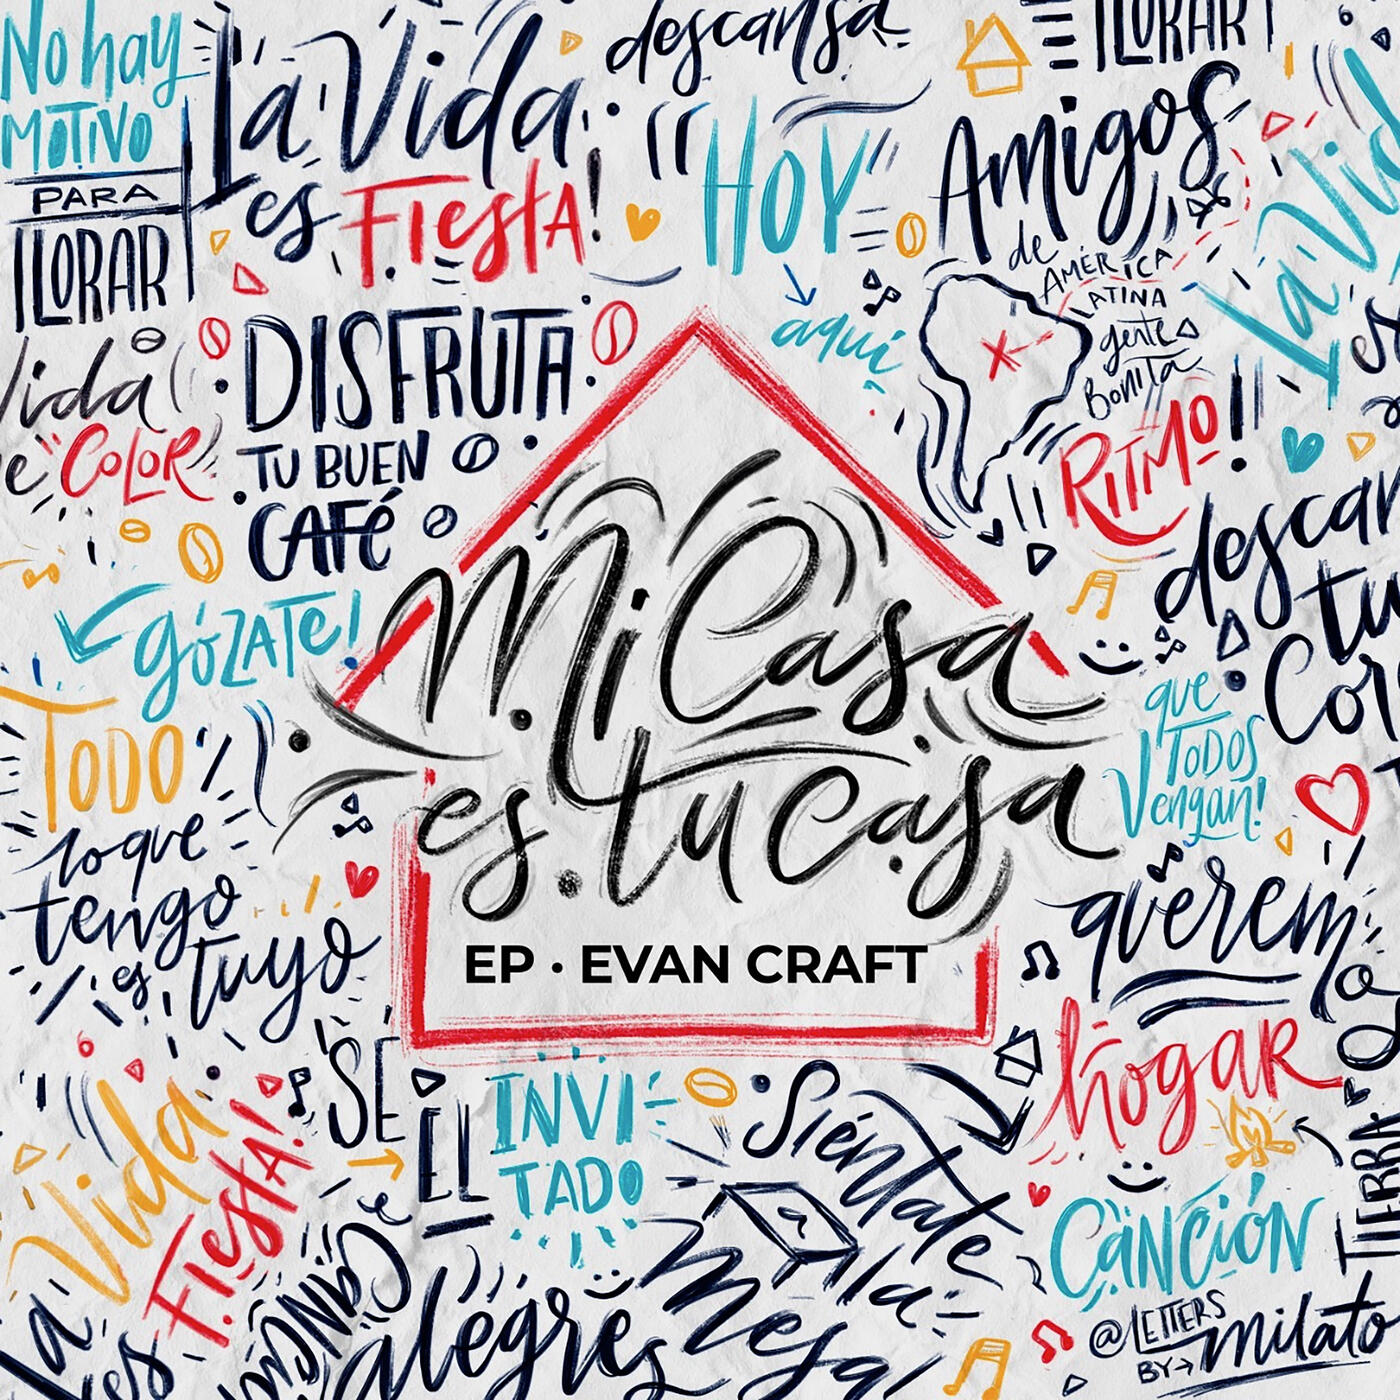 No hay
MOTIVO
PARA
LLORAR
La Vida
es FiestA!
descansa
HOY
aquí
LLORAR
Amigos
de
AMÉRICA
LATINA
gente
Bonita
La Vid
es
Vida
de COLOR
DISFRUTA
TU BUEN
CAFÉ
RITMO!
descan
tu
Cor
gózATe!
Mi Casa
es tu casa
EP · EVAN CRAFT
TODO
lo que
tengo
es tuyo
que
TODOS
Vengan!
querem
hogar
SÉ
EL
INVI
TADO
Siéntate
a la
mesa
Vida
Fiesta!
La
alegres
CANCIÓN
TIERRA
@LETTERS
BY→milato